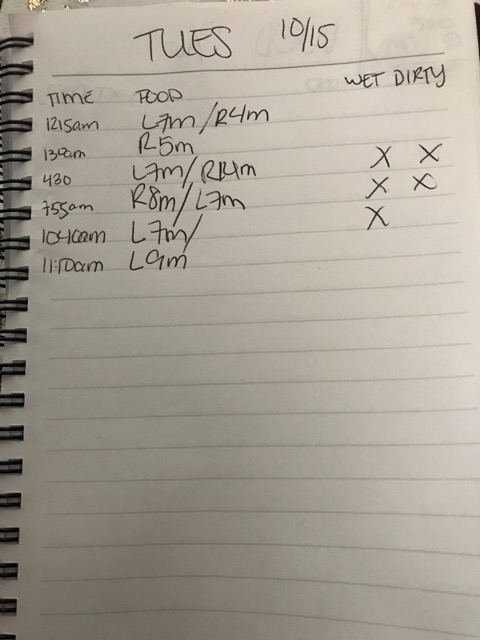 TUES 10/15
WET DIRTY
TIME FOOD
1215am L7m/R4m
130am R5m X X
430 L7m/R14m X X
755am R8m/L7m X
1040am L7m/
11:10am L9m